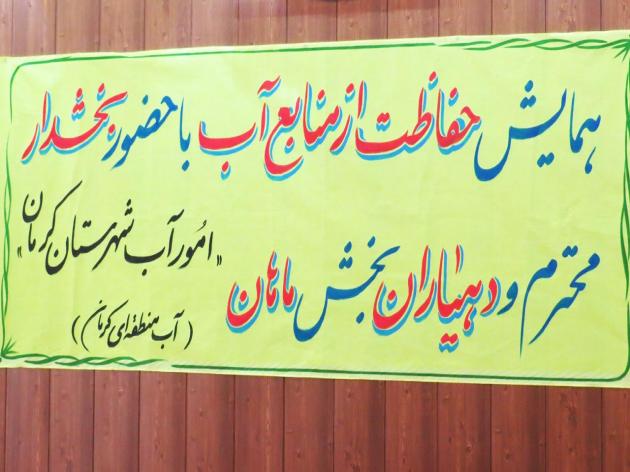 همایش حفاظت از منابع آب با حضور بخشدار
محترم و دهیاران بخش ماهان
"امور آب شهرستان کرمان"
(آب منطقه‌ای کرمان)